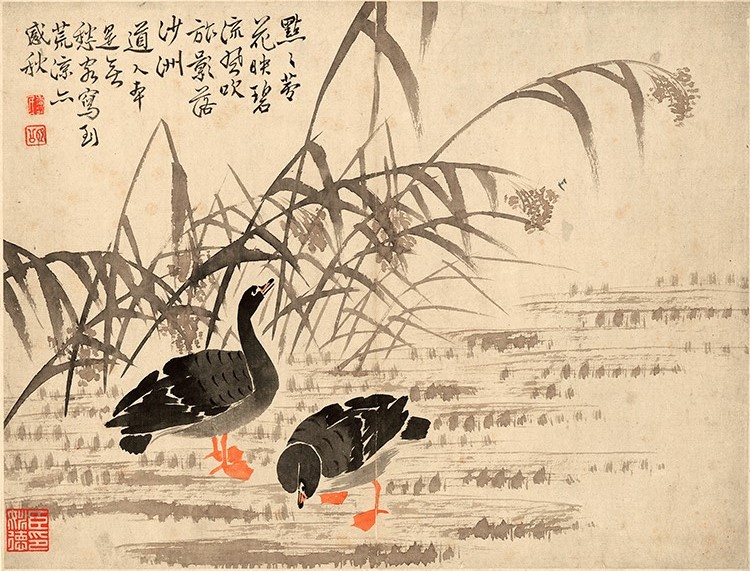 點〻
花映碧
流風吹
旅影落
沙洲
道人本
是無
愁客寫到
荒涼亦
感秋